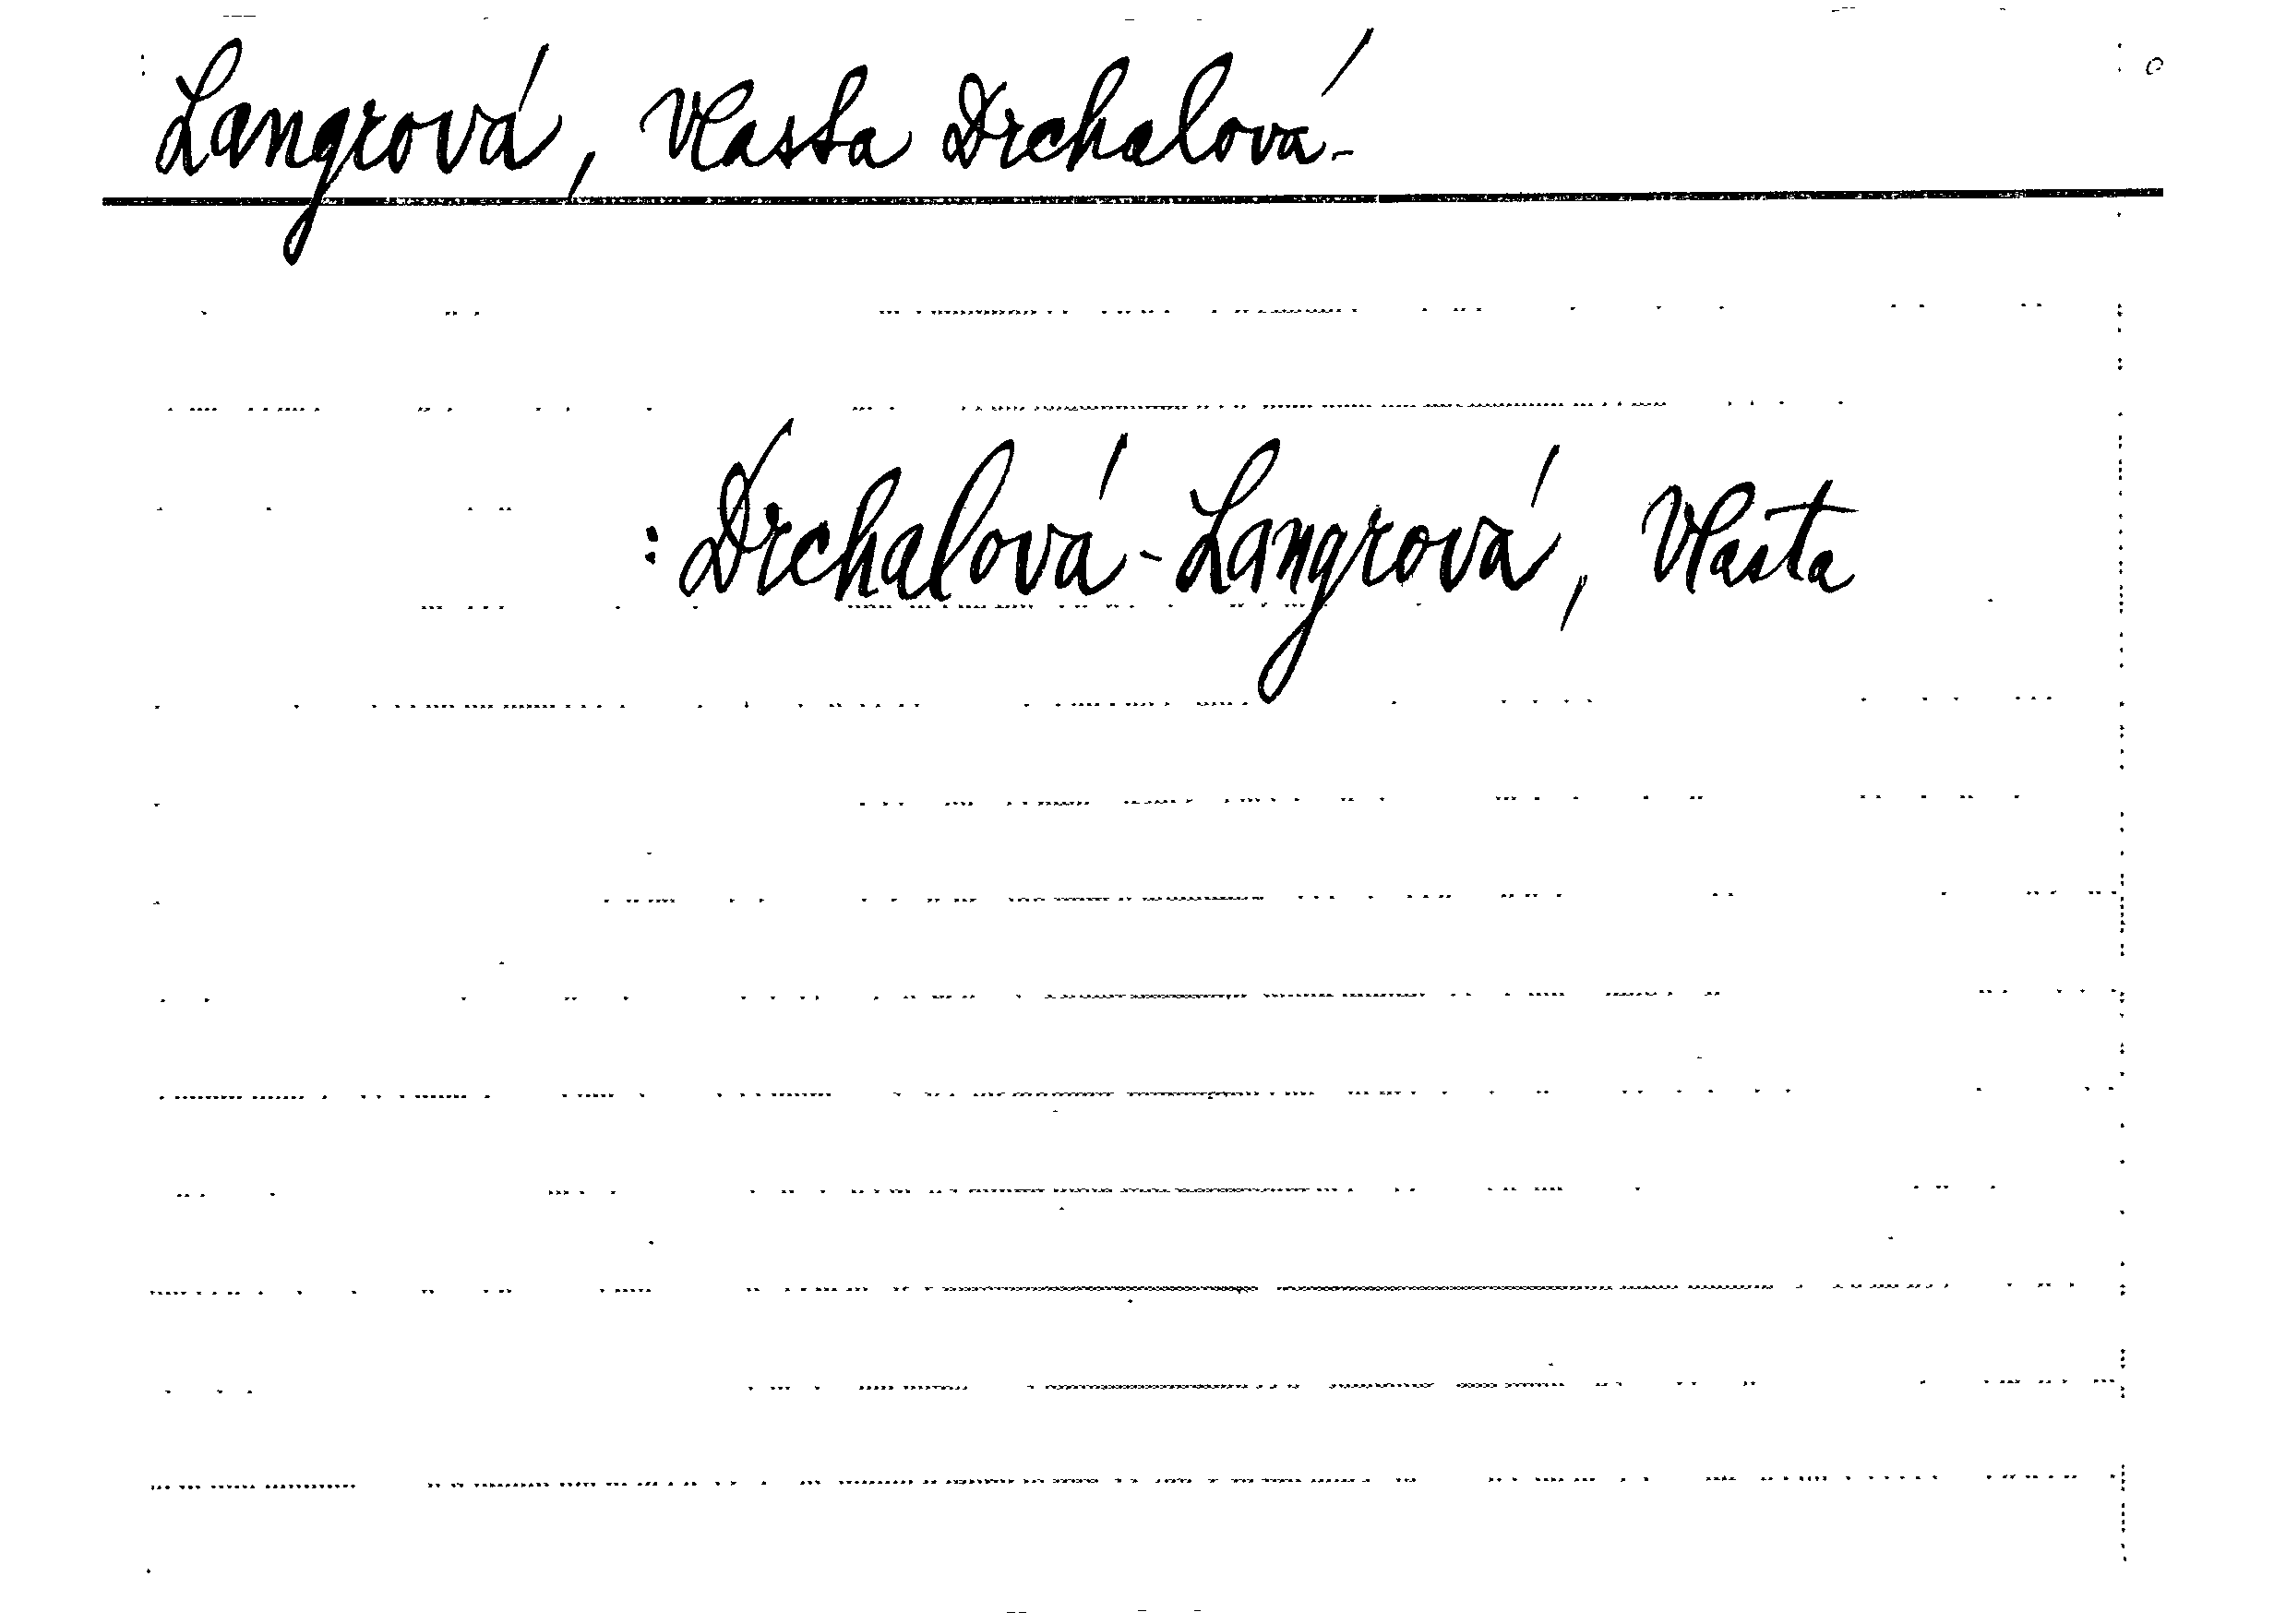 Langrová, Vlasta Drchalová-
: Drchalová-Langrová, Vlasta